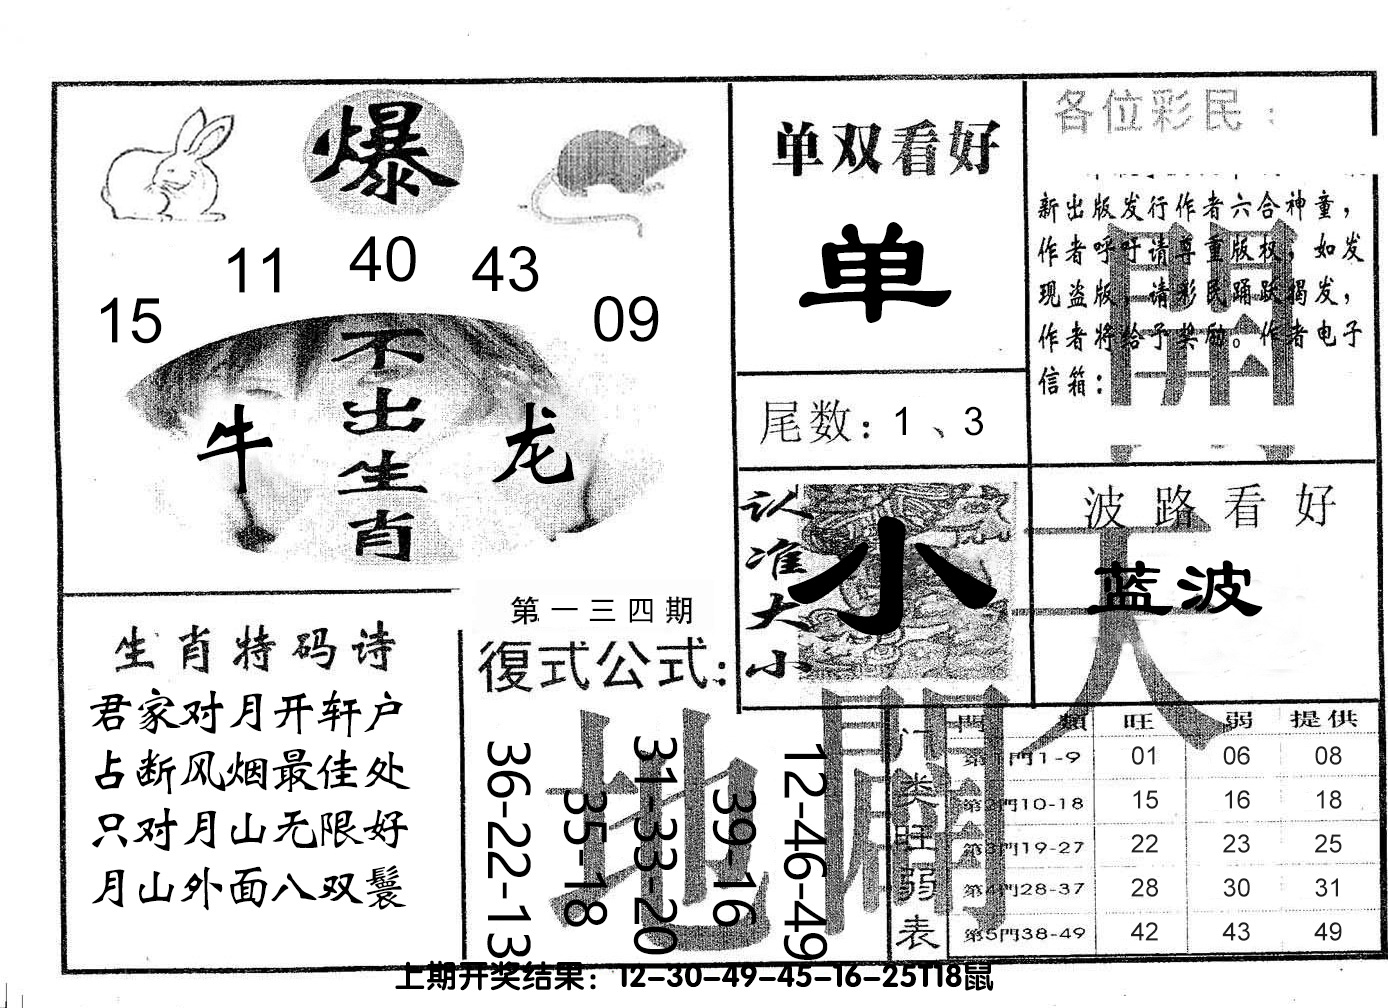 爆
15 11 40 43 09
不出生肖
牛 龙
单双看好
单
尾数：1、3
各位彩民：
新出版发行作者六合神童，
作者呼吁请尊重版权，如发
现盗版，请彩民踊跃揭发，
作者将给予奖励。作者电子
信箱：
開
认准大小
小
波路看好
蓝波
天
生肖特码诗
君家对月开轩户
占断风烟最佳处
只对月山无限好
月山外面八双鬟
第一三四期
復式公式：
36-22-13
35-18
31-33-20
39-16
12-46-49
地
门类旺弱表
門類 旺 弱 提供
第1門1-9 01 06 08
第2門10-18 15 16 18
第3門19-27 22 23 25
第4門28-37 28 30 31
第5門38-49 42 43 49
上期开奖结果：12-30-49-45-16-25T18鼠